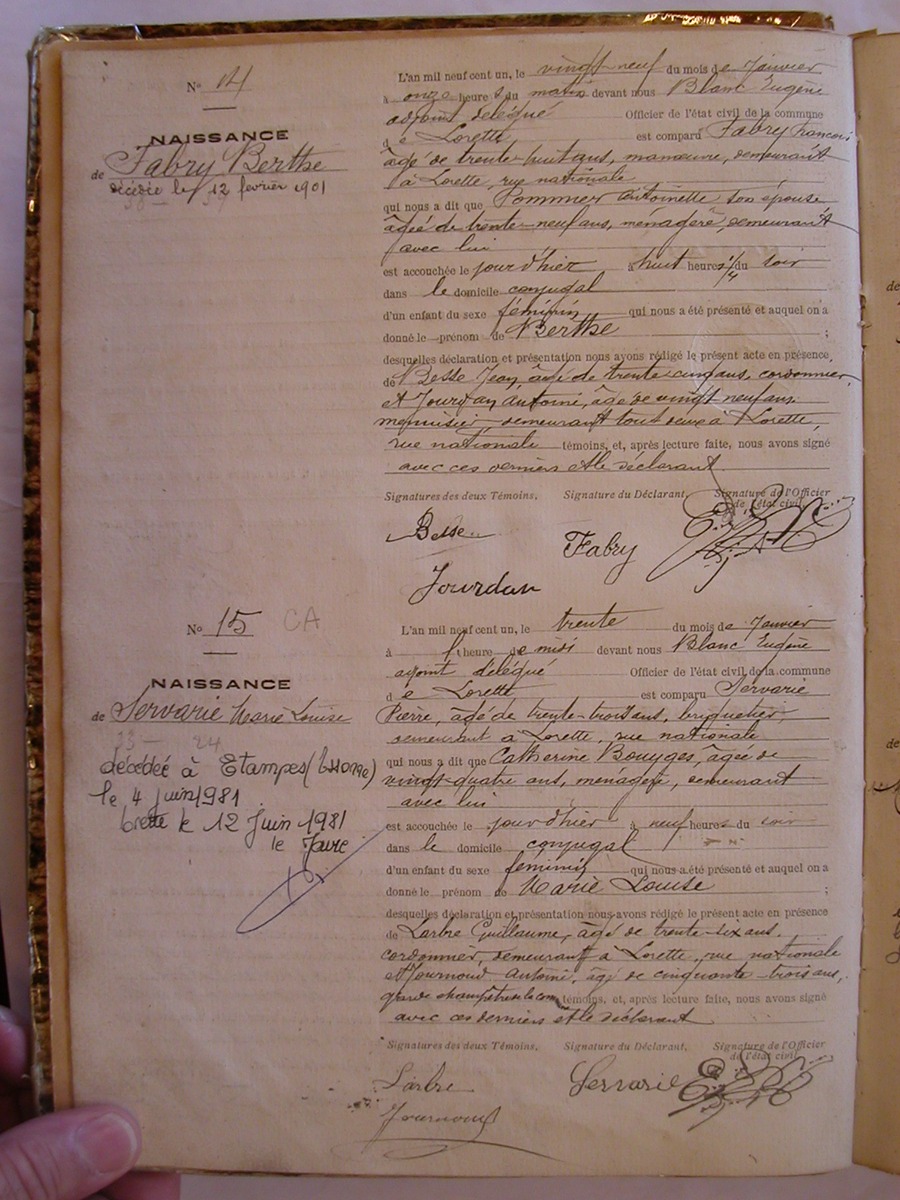 N° 14
NAISSANCE
de Fabry Berthe
décédée le 12 fevrier 1901
L'an mil neuf cent un, le vingt neuf du mois de Janvier
à onze heures du matin devant nous Blanc Eugène
adjoint délégué Officier de l'état civil de la commune
de Lorette est comparu Fabry François,
âgé de trente-huit ans, manœuvre, demeurant
à Lorette, rue nationale
qui nous a dit que Pommier Antoinette son épouse
âgée de trente-neuf ans, ménagère, demeurant
avec lui
est accouchée le jour d'hier à huit heures 1/4 du soir
dans le domicile conjugal
d'un enfant du sexe féminin qui nous a été présenté et auquel on a
donné le prénom de Berthe ;
desquelles déclaration et présentation nous avons rédigé le présent acte en présence
de Besse Jean, âgé de trente-cinq ans, cordonnier,
et Jourdan Antoine, âgé de vingt neuf ans
menuisier, demeurant tout deux à Lorette,
rue nationale témoins, et, après lecture faite, nous avons signé
avec ces derniers et le déclarant.
Signatures des deux Témoins, Signature du Déclarant, Signature de l'Officier
de l'état civil,
Besse
Fabry
Jourdan
N° 15 CA
NAISSANCE
de Servarie Marie Louise
décédée à Etampes (Essonne)
le 4 juin 1981
Lorette le 12 Juin 1981
le Maire
L'an mil neuf cent un, le trente du mois de Janvier
à 1 heure de midi devant nous Blanc Eugène
adjoint délégué Officier de l'état civil de la commune
de Lorette est comparu Servarie
Pierre, âgé de trente-trois ans, briquetier,
demeurant à Lorette, rue nationale
qui nous a dit que Catherine Bouyges, âgée de
vingt-quatre ans, ménagère, demeurant
avec lui
est accouchée le jour d'hier à neuf heures du soir
dans le domicile conjugal
d'un enfant du sexe féminin qui nous a été présenté et auquel on a
donné le prénom de Marie Louise ;
desquelles déclaration et présentation nous avons rédigé le présent acte en présence
de Larbre Guillaume, âgé de trente-six ans.
cordonnier, demeurant à Lorette, rue nationale
et Journoud Antoine, âgé de cinquante-trois ans,
garde champêtre de la com témoins, et, après lecture faite, nous avons signé
avec ces derniers et le déclarant
Signatures des deux Témoins, Signature du Déclarant, Signature de l'Officier
de l'état civil,
Larbre
Servarie
Journoud